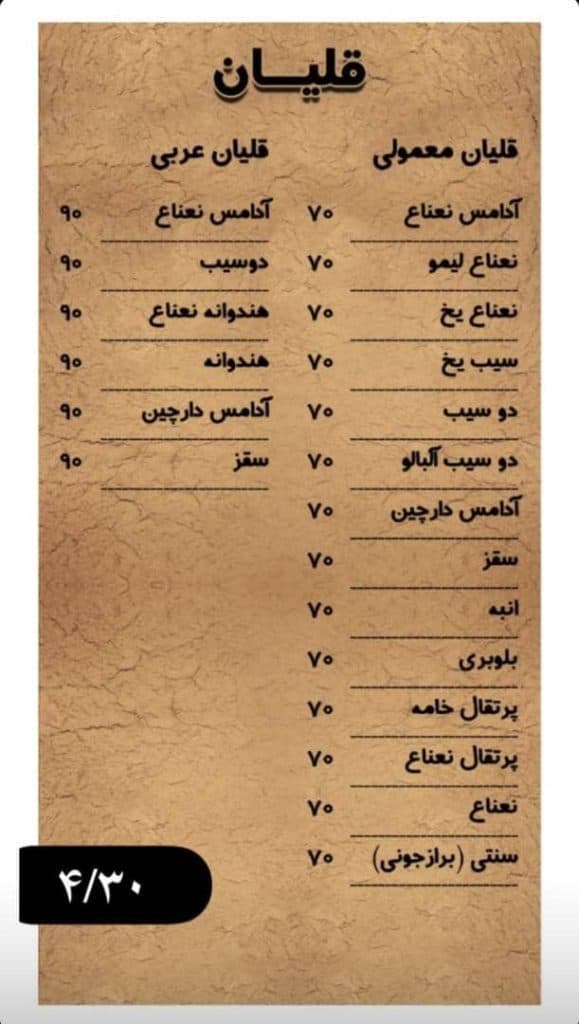 قلیــان
قلیان معمولی
آدامس نعناع ۷۰
نعناع لیمو ۷۰
نعناع یخ ۷۰
سیب یخ ۷۰
دو سیب ۷۰
دو سیب آلبالو ۷۰
آدامس دارچین ۷۰
سقز ۷۰
انبه ۷۰
بلوبری ۷۰
پرتقال خامه ۷۰
پرتقال نعناع ۷۰
نعناع ۷۰
سنتی (برازجونی) ۷۰
قلیان عربی
آدامس نعناع ۹۰
دوسیب ۹۰
هندوانه نعناع ۹۰
هندوانه ۹۰
آدامس دارچین ۹۰
سقز ۹۰
۴/۳۰